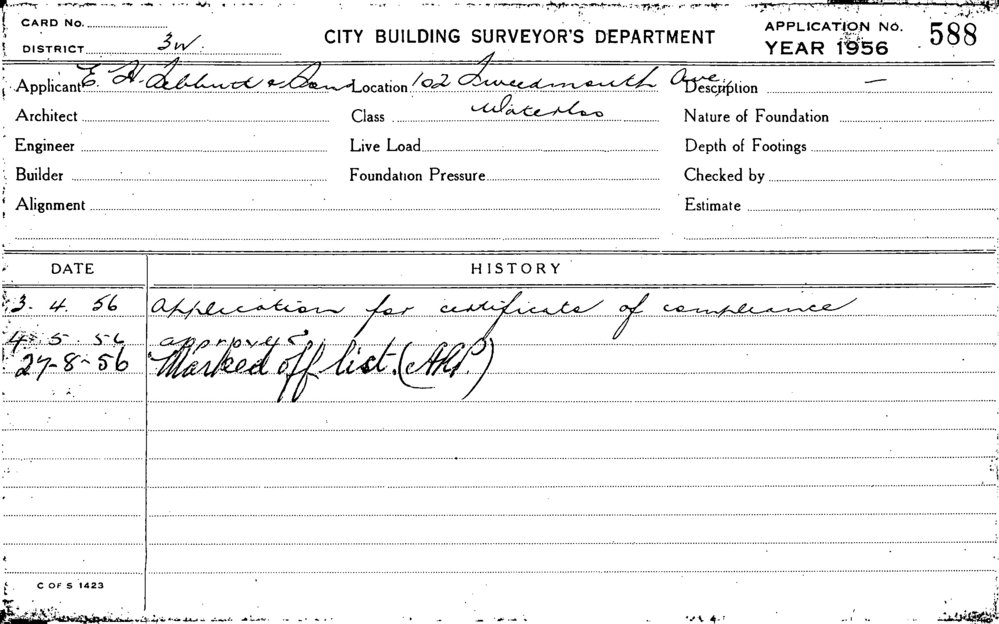 CARD No.
DISTRICT 3W.
CITY BUILDING SURVEYOR'S DEPARTMENT
APPLICATION No. 588
YEAR 1956
Applicant E. H. Tebbutt & Sons Location 102 Tweedmouth Ave, Description —
Architect Class Waterloo Nature of Foundation
Engineer Live Load Depth of Footings
Builder Foundation Pressure Checked by
Alignment Estimate
DATE HISTORY
3. 4. 56 Application for certificate of compliance
4. 5. 56 approved
27-8-56 Marked off list.
C OF S 1423